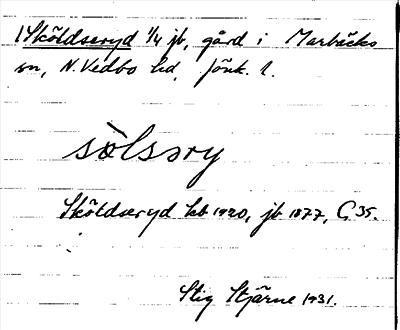 1 Sköldseryd 1/4 jb, gård i Marbäcks
sn, N. Vedbo hd, Jönk. l.
sòlsəry
Sköldseryd kb 1920, jb 1877, G 35.
Stig Stjärne 1931.